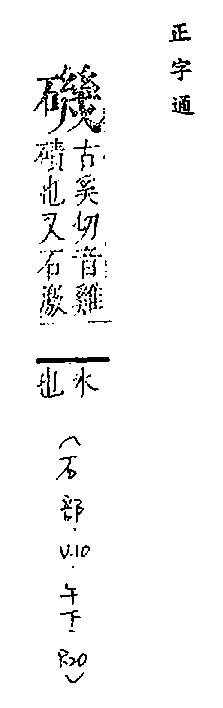 正字通
磯
古奚切音雞
磧也又石激
水
也
(石部.V.10.午下.P.20)